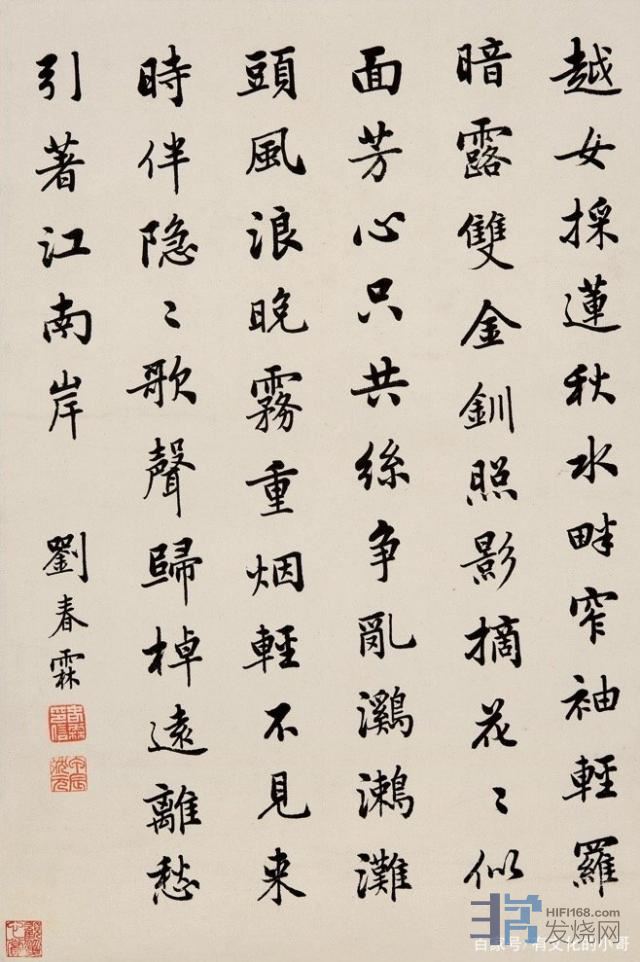 越女採蓮秋水畔窄袖輕羅
暗露雙金釧照影摘花〻似
面芳心只共絲争亂鸂鶒灘
頭風浪晚霧重烟輕不見来
時伴隐〻歌聲歸棹遠離愁
引著江南岸
劉春霖
HIFI168.com
发烧网
百家号/有文化的小哥